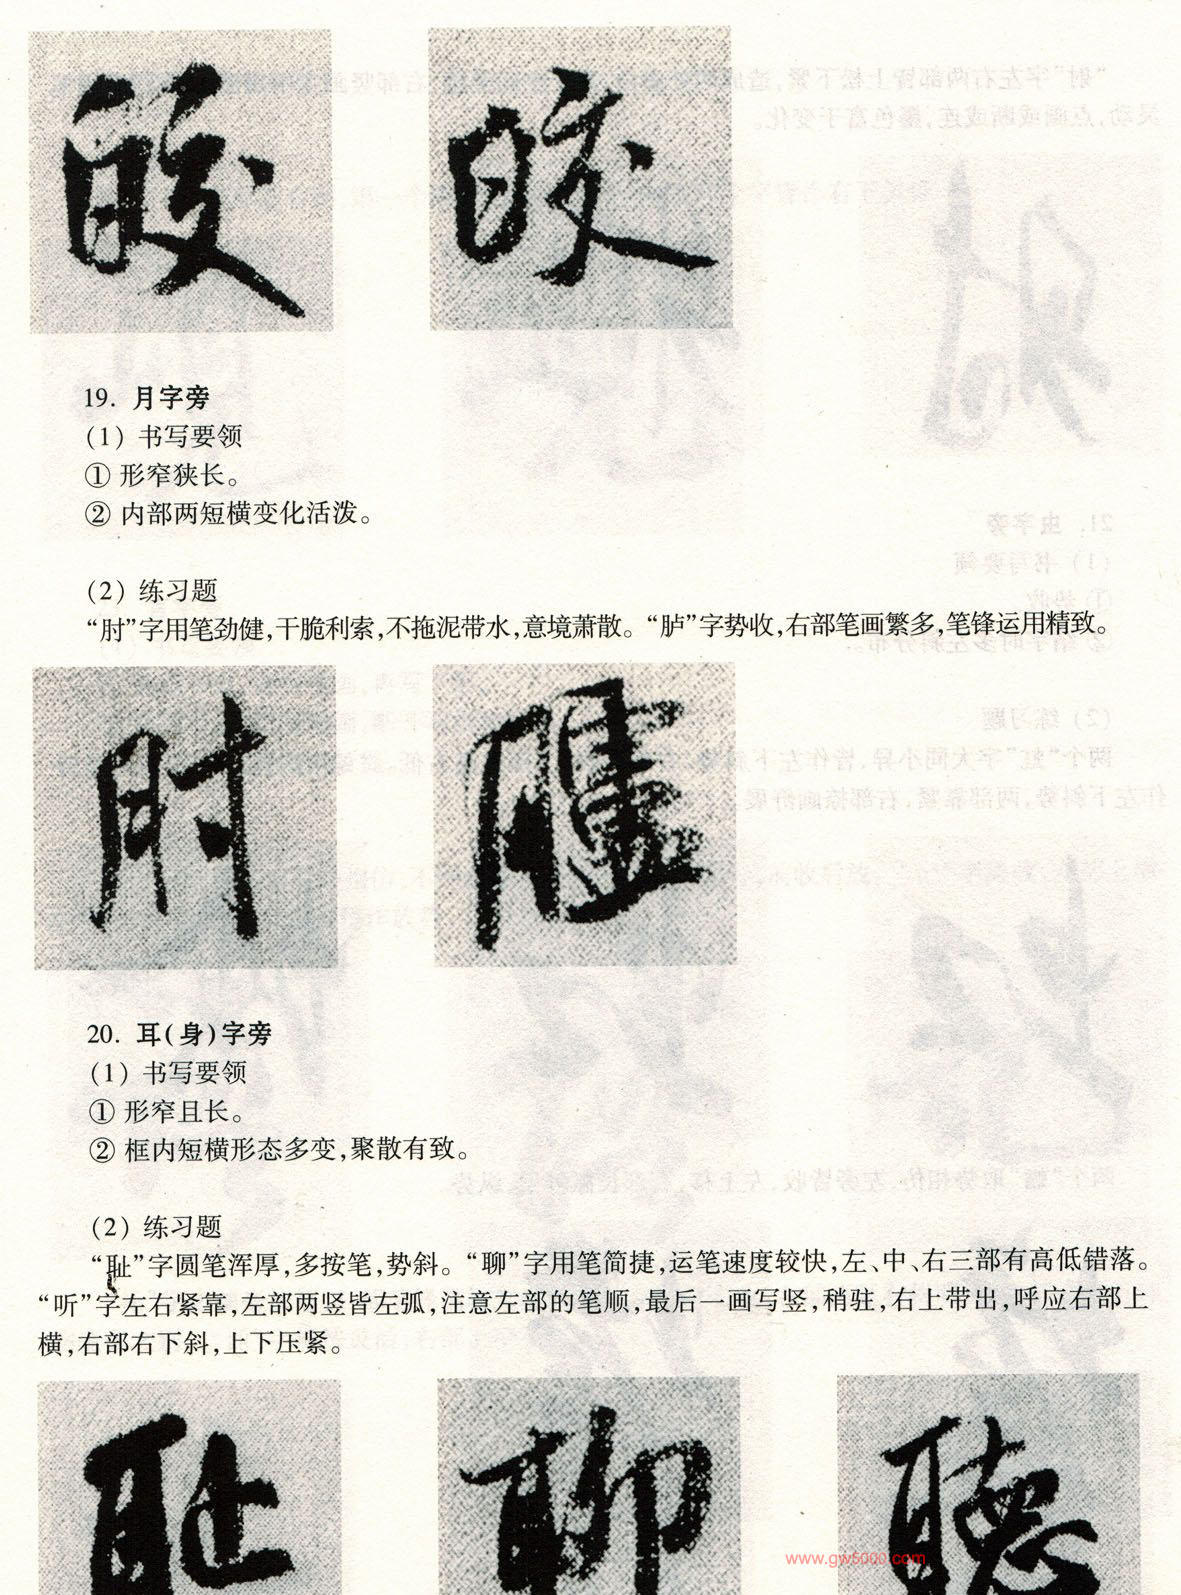 皎 皎
19. 月字旁
(1) 书写要领
① 形窄狭长。
② 内部两短横变化活泼。
(2) 练习题
“肘”字用笔劲健,干脆利索,不拖泥带水,意境萧散。“胪”字势收,右部笔画繁多,笔锋运用精致。
肘 臚
20. 耳(身)字旁
(1) 书写要领
① 形窄且长。
② 框内短横形态多变,聚散有致。
(2) 练习题
“耻”字圆笔浑厚,多按笔,势斜。“聊”字用笔简捷,运笔速度较快,左、中、右三部有高低错落。
“听”字左右紧靠,左部两竖皆左弧,注意左部的笔顺,最后一画写竖,稍驻,右上带出,呼应右部上
横,右部右下斜,上下压紧。
耻 聊 聽
www.gw5000.com